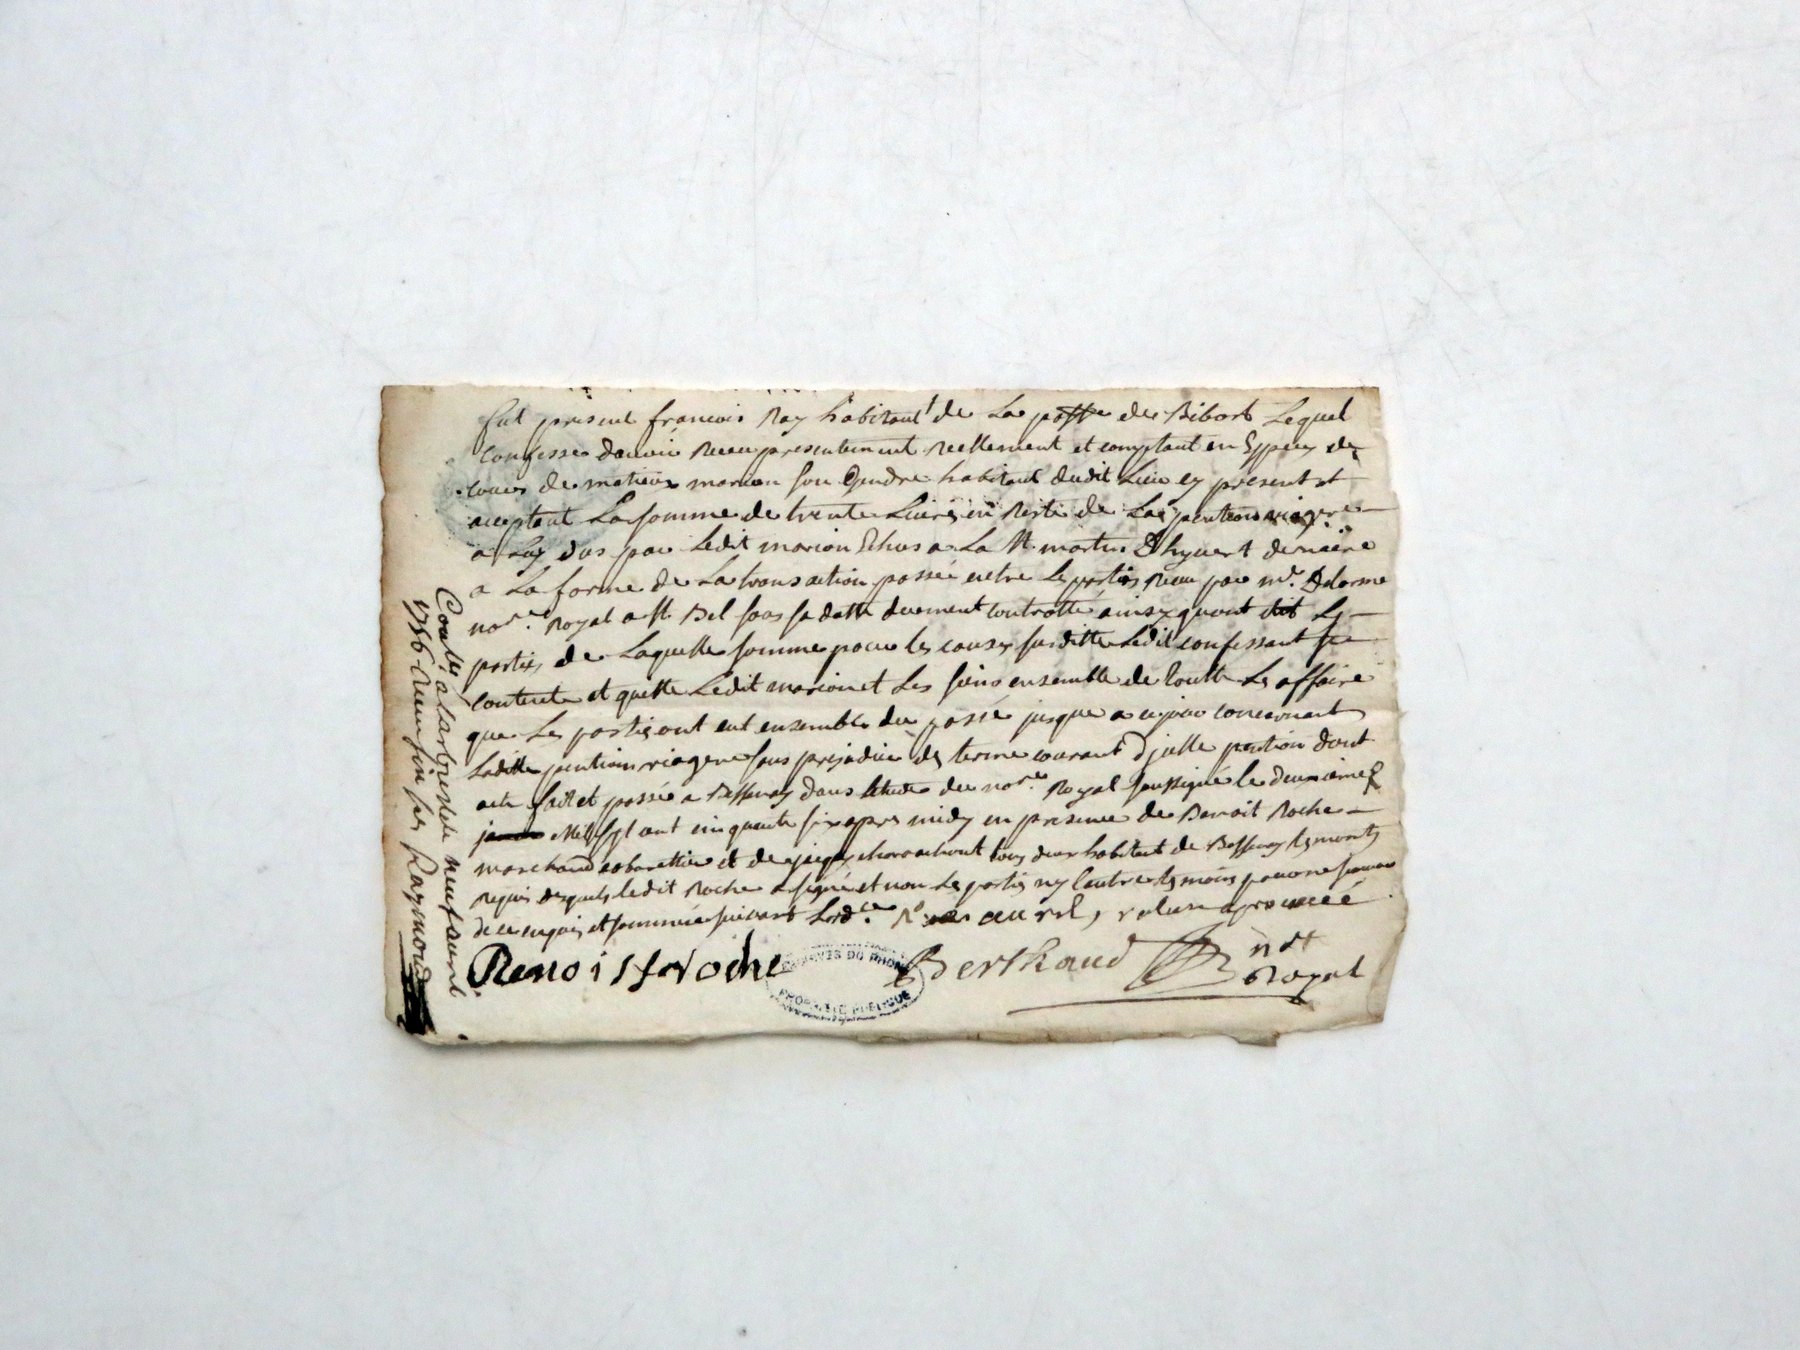 fut present francois Ray habitant de La poste de Bibost Lequel
confesse davoir Receu presentement Reellement et comptant en Especes de
de matieu marion son Gendre habitant dudit Lieu ey present et
acceptant La somme de trente Livres en Reste de La pention viagere
a Luy dus par Ledit marion Echus a La St martin Dhyvert derniere
a La forme de La transaction passée entre Les parties Receu par mr. Delorme
nore. Royal a St Bel sous sa datte duement controllé ainsy quont dit Les
parties de Laquelle somme pour les causes susditte Ledit confessant se
contente et quitte Ledit marion et Les siens ensemble de toutte Les affaire
que Les parties ont eut ensemble du passé jusque a ce jour concernant
Laditte pention viagere sans prejudice du terme courant djcelle pention dont
acte fait et passé a Bessenay dans letude du nore. Royal soussigné le deuxieme
Mil sept cent cinquante six apres midy en presence de Benoit Roche
marchand cabarettier et de tous deux habitant de Bessenay temoins
Requis desquels ledit Roche a signé et non Les parties ny lautre temoins pour ne scavoir
de ce enquis et sommée suivant Lordce. Ro avril, rature aprouvée
Benoist Roche Bertkaud not
Royal
Coullé a Larbresle neuf avril
1756 Receu six sols Raymond
ARCHIVES DU RHONE
PROPRIÉTÉ PUBLIQUE